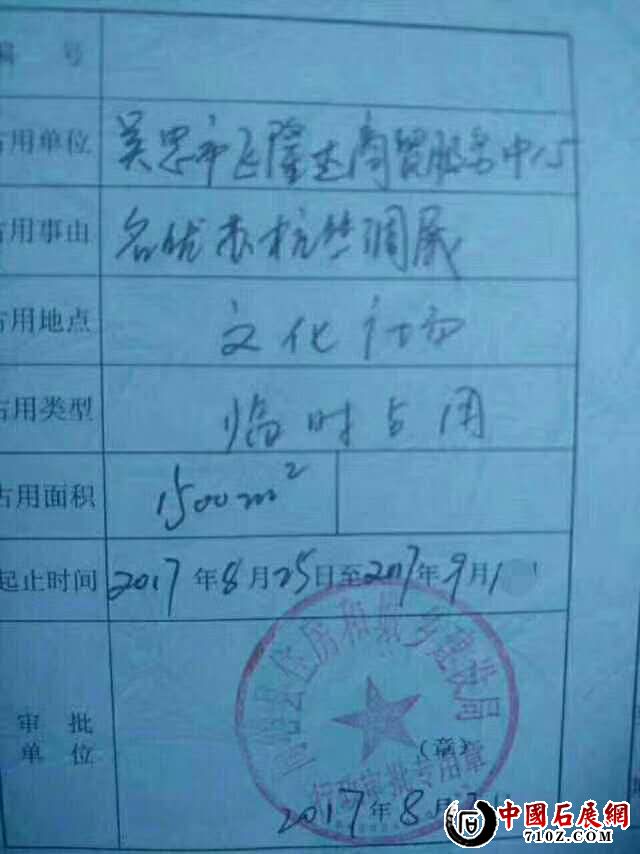 编 号
占用单位 吴忠市飞隆达商贸服务中心
占用事由 名优苏杭丝绸展
占用地点 文化广场
占用类型 临时占用
占用面积 1500m²
起止时间 2017年8月25日至2017年9月1
审 批
单 位
县住房和城乡建设局
(章)
行政审批专用章
2017年8月
中國石展網
7102.COM